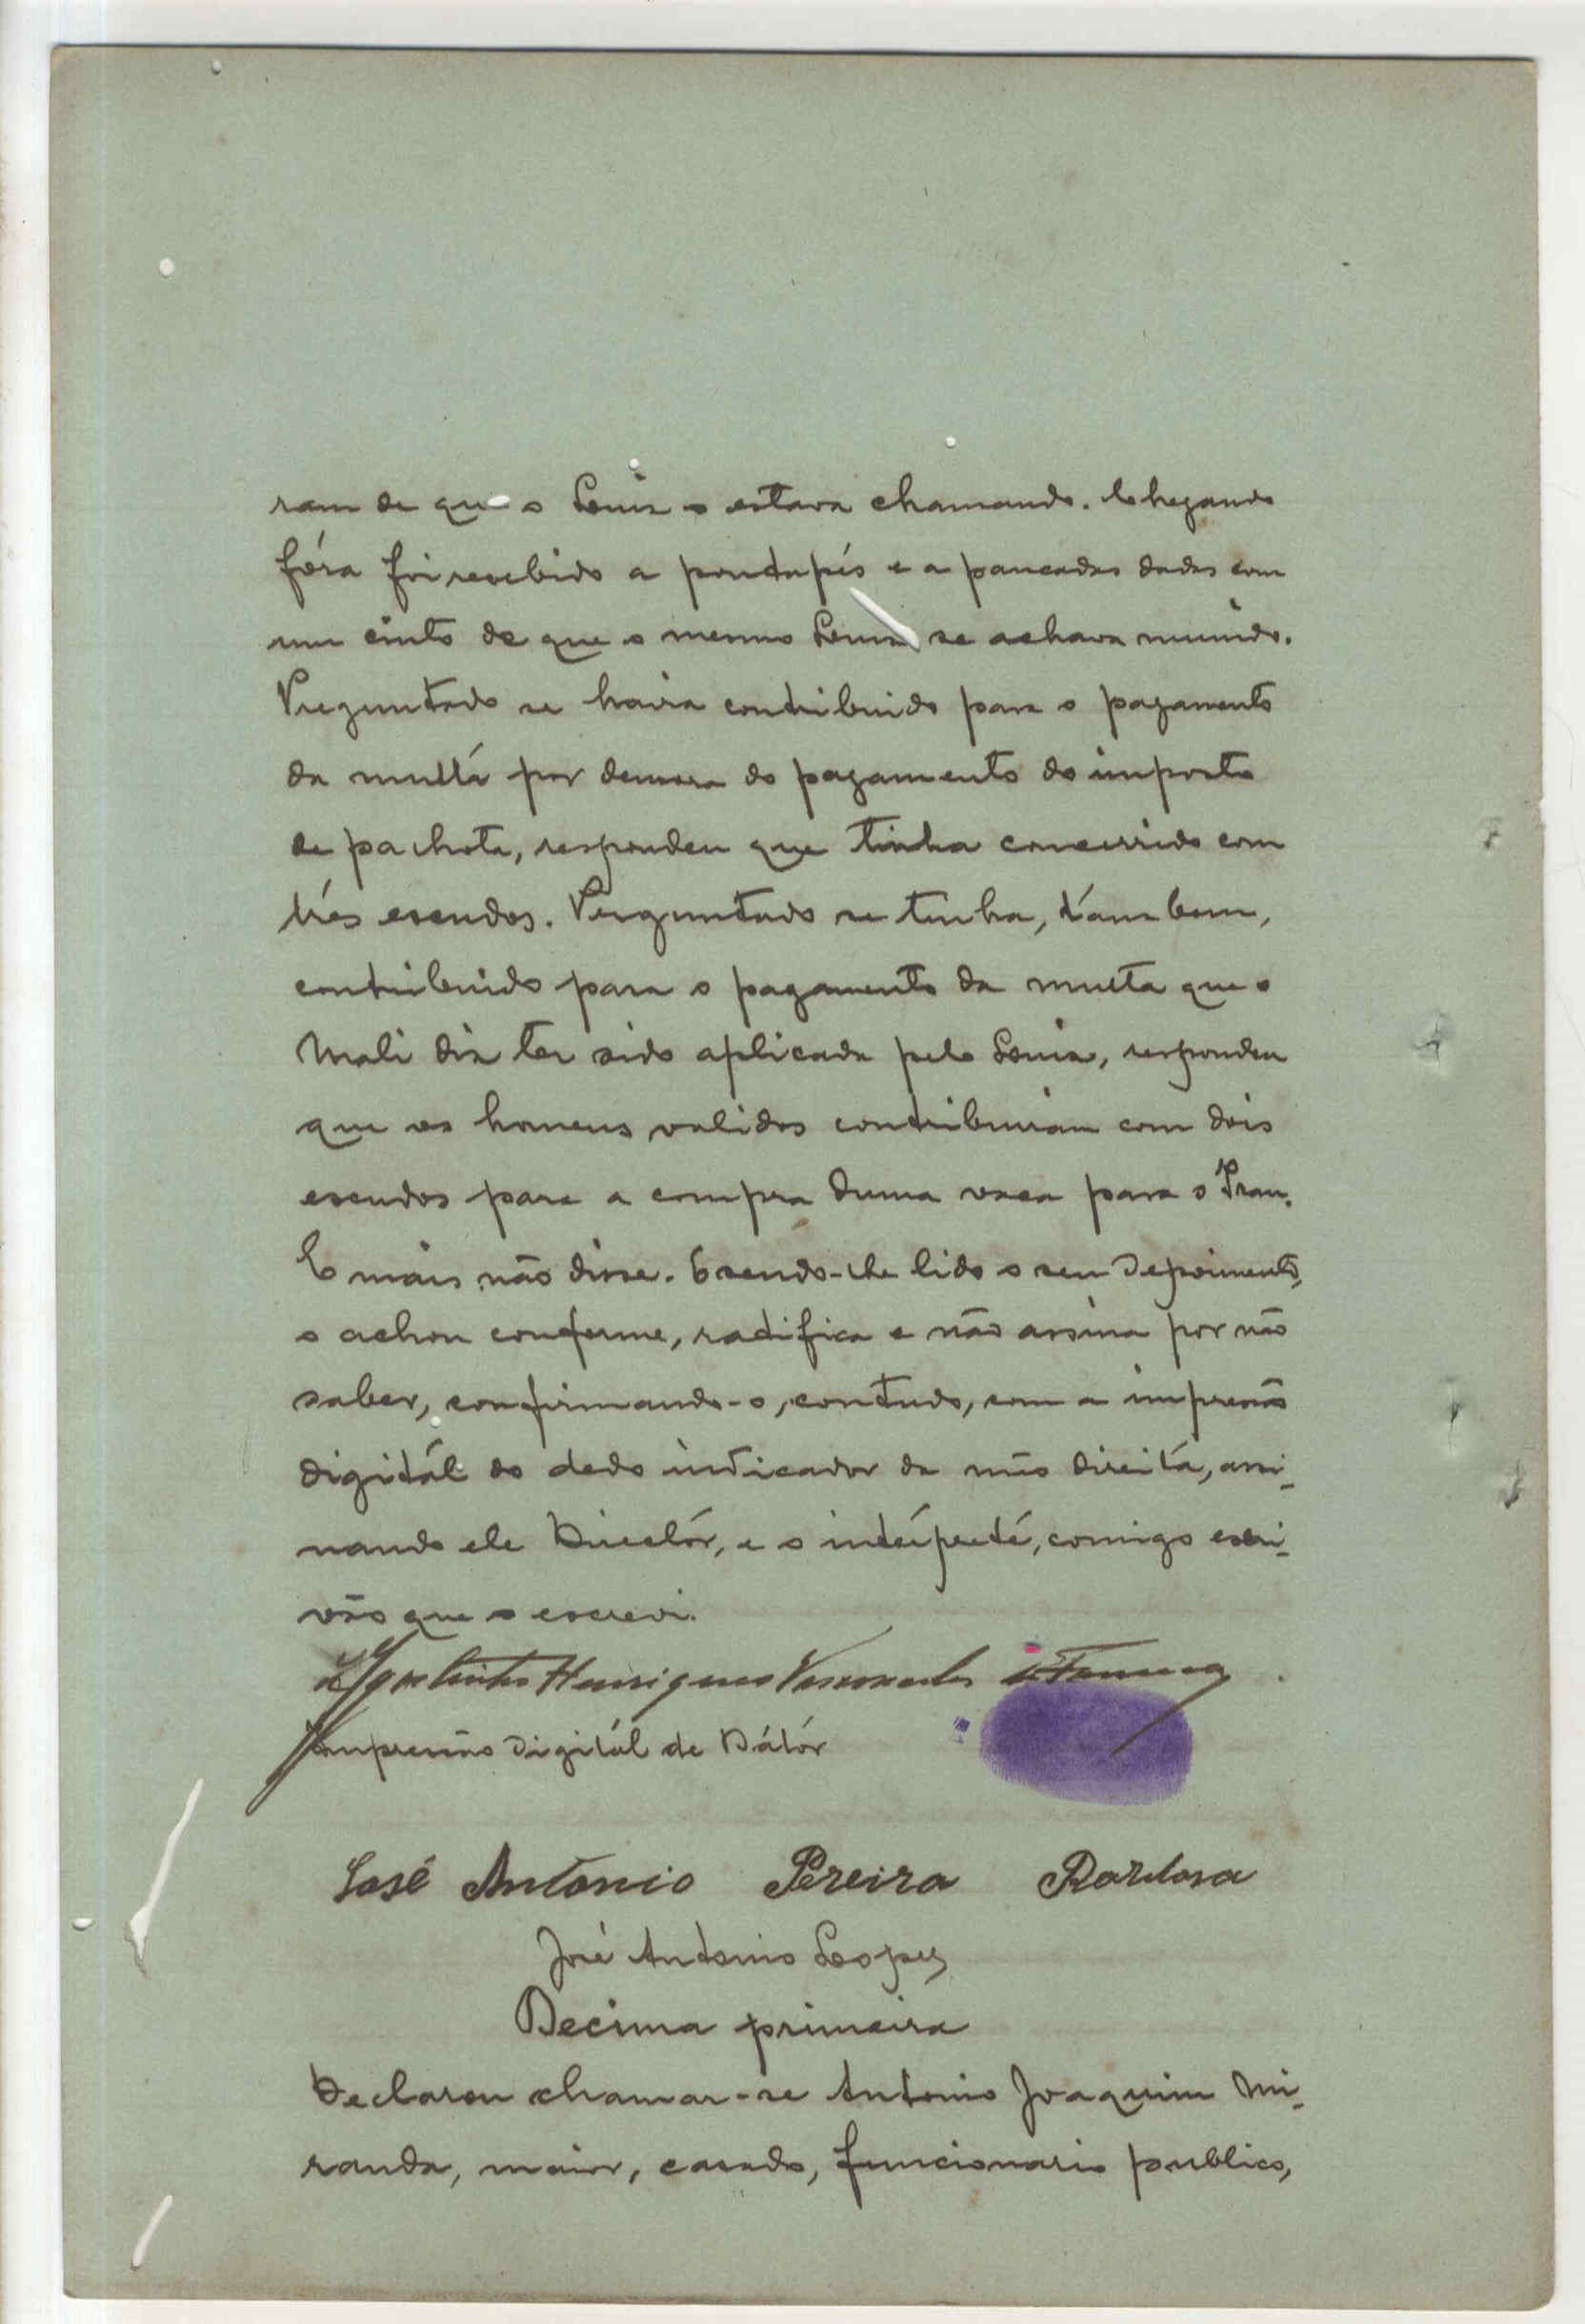 ram de que o Luiz o estava chamando. Chegando
fóra foi recebido a pontapés e a pancadas dadas com
um cinto de que o mesmo Luiz se achava munido.
Preguntado se havia contribuido para o pagamento
da multá por demora do pagamento do imposto
de palhota, respondeu que tinha concorrido com
três escudos. Perguntado se tinha, tambem,
contribuido para o pagamento da multa que o
Mali diz ter sido aplicada pelo Luiz, respondeu
que os homens validos contribuiram com dois
escudos para a compra duma vaca para o Iran.
E mais não disse. E sendo-lhe lido o seu depoimento,
o achou conforme, radifica e não assina por não
saber, confirmando-o, contudo, com a impressão
digitál do dedo indicador da mão direitá, assi-
nando ele Directór, e o intérpreté, comigo escri-
vão que o escrevi.
Henriques
Impressão digitál de Dátór
José Antonio Pereira Bardosa
José Antonio Lopes
Decima primeira
Declarou chamar-se Antonio Joaquim Mi-
randa, maior, casado, funcionario publico,